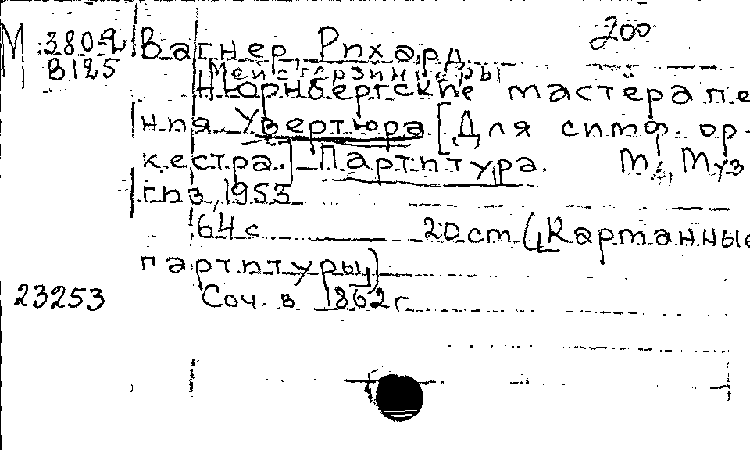 200
М 3809 Вагнер, Рихард
В125 Мейстерзингеры
Нюрнбергские мастера пе-
ния Увертюра [Для симф. ор-
кестра.] Партитура. М., Муз
гиз, 1953
64 с 20 см (Карманные
партитуры)
23253 Соч. в 1862 г.